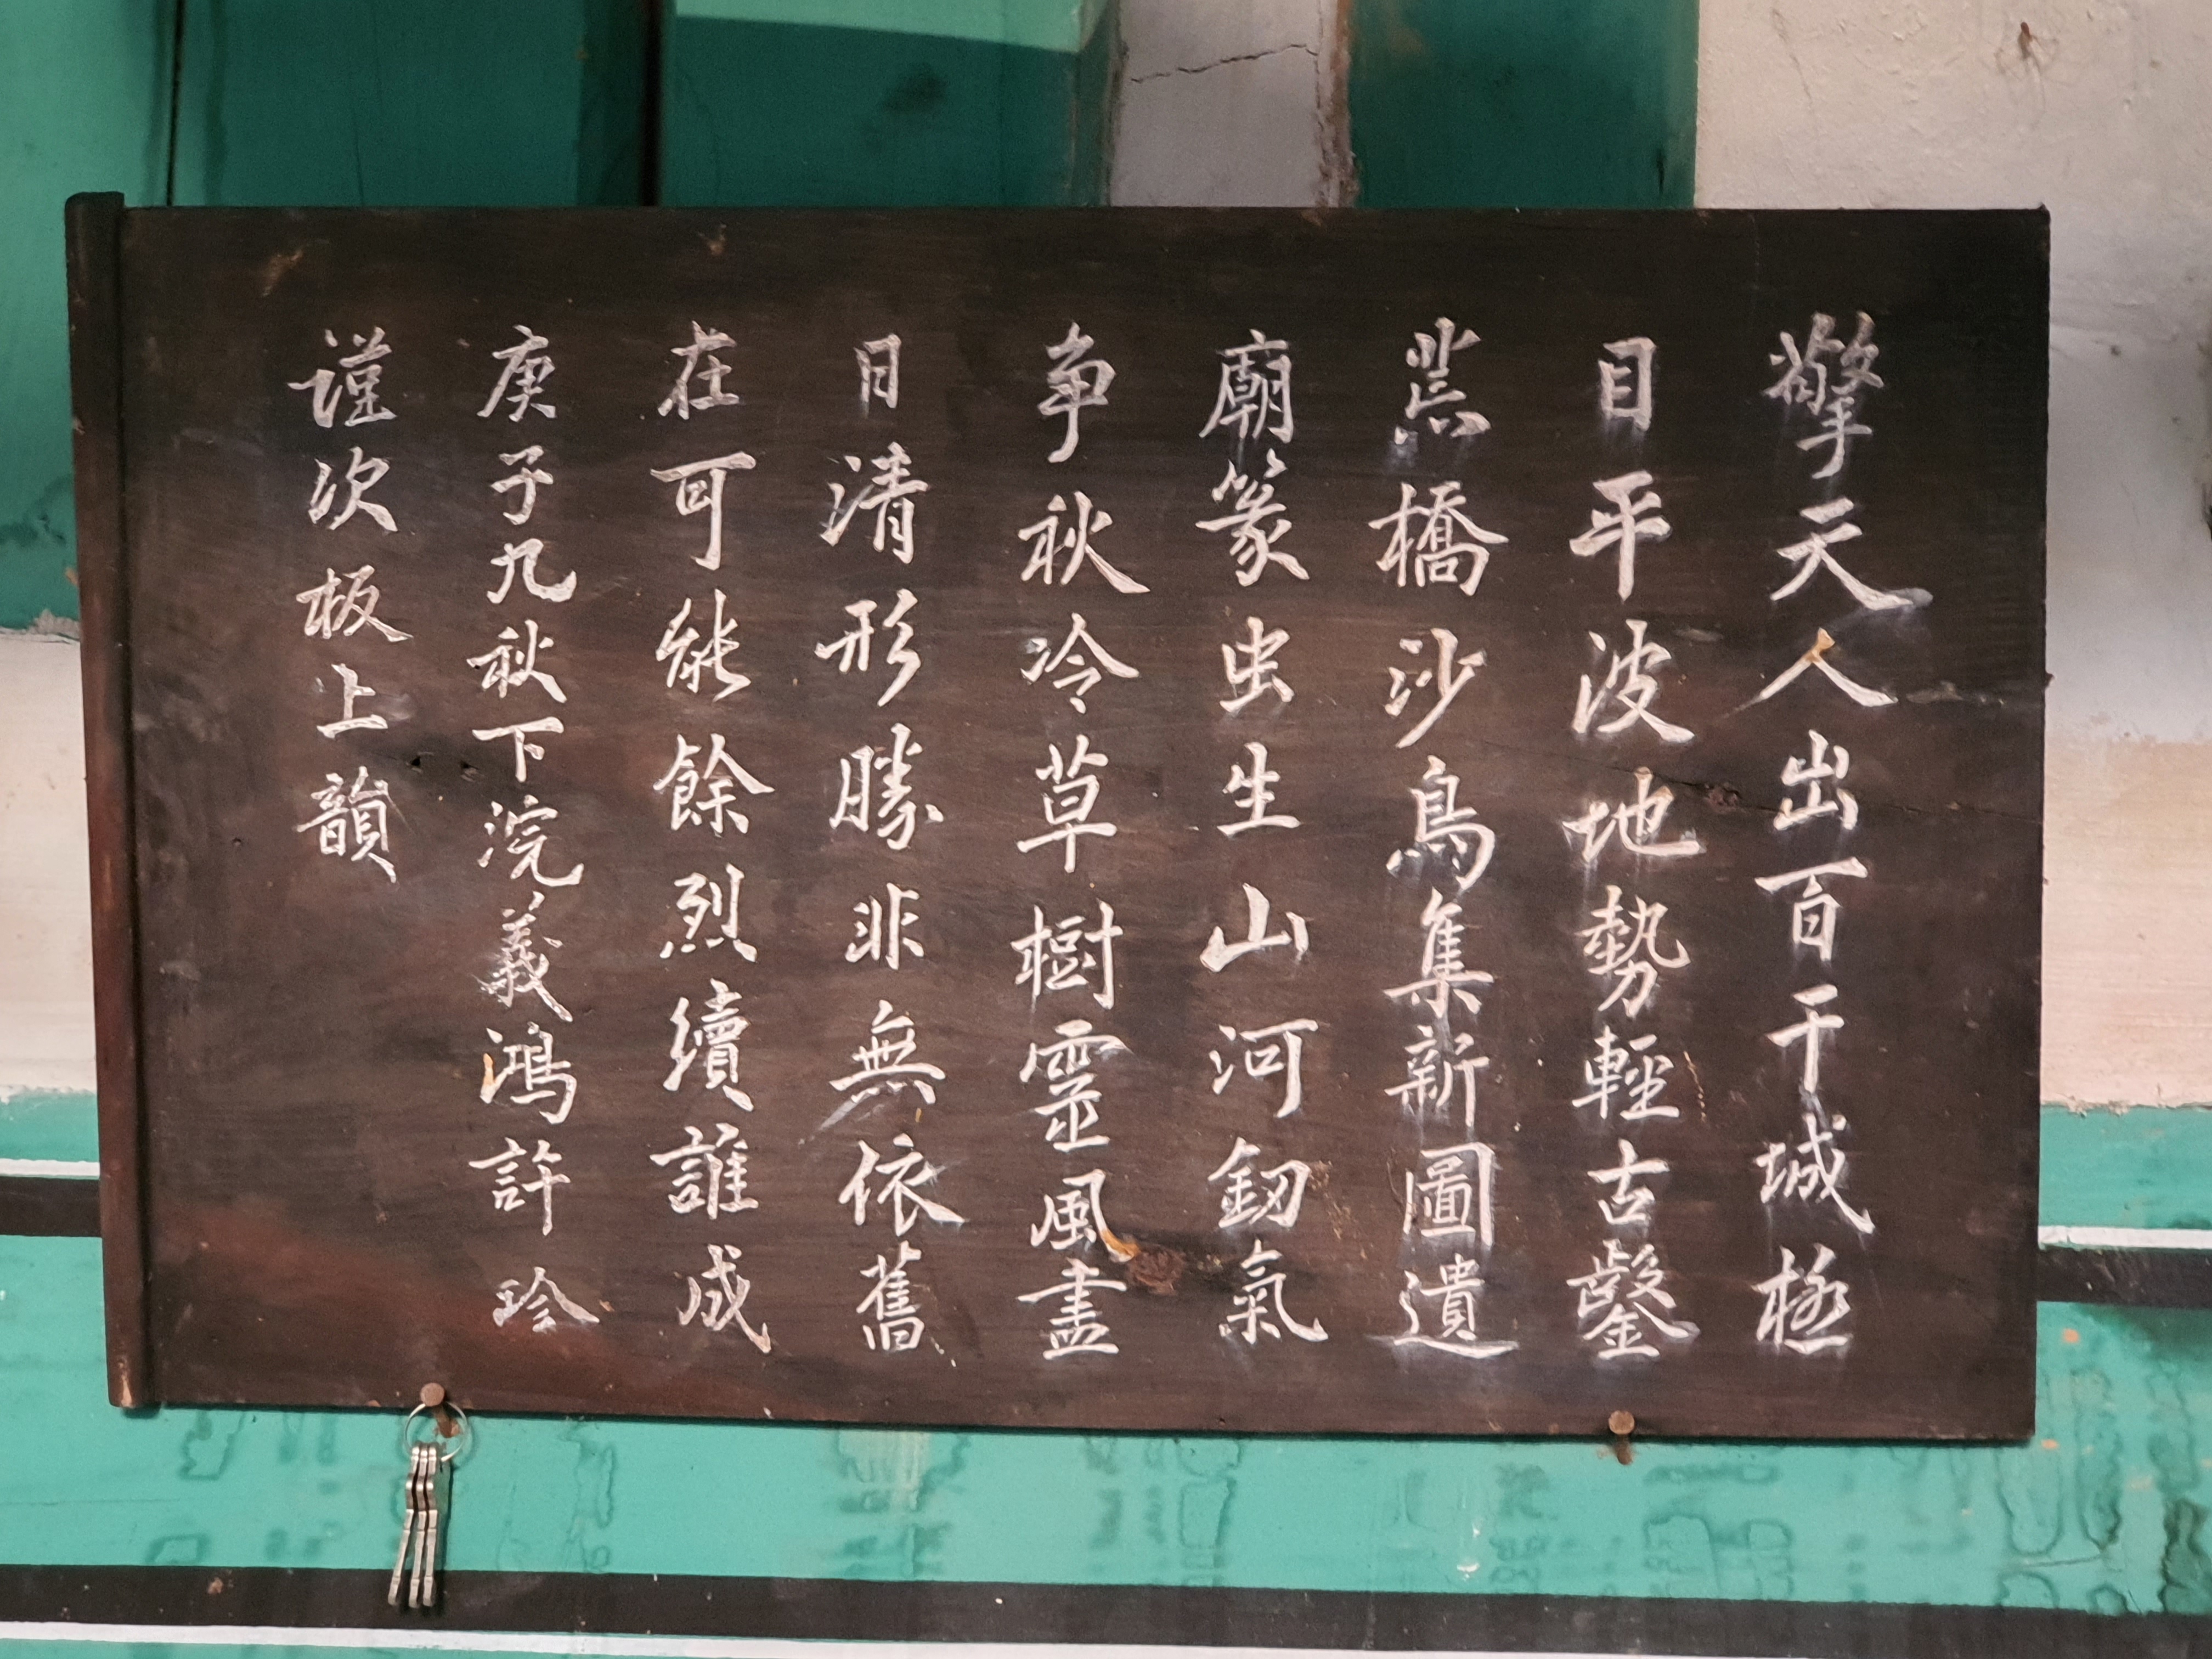 擎天人出百千城極
目平波地勢輕古鑿
棐橋沙鳥集新圖遺
廟篆虫生山河釰氣
争秋冷草樹靈風盡
日清形勝非無依舊
在可能餘烈續誰成
庚子九秋下浣義鴻許珍
謹次板上韻